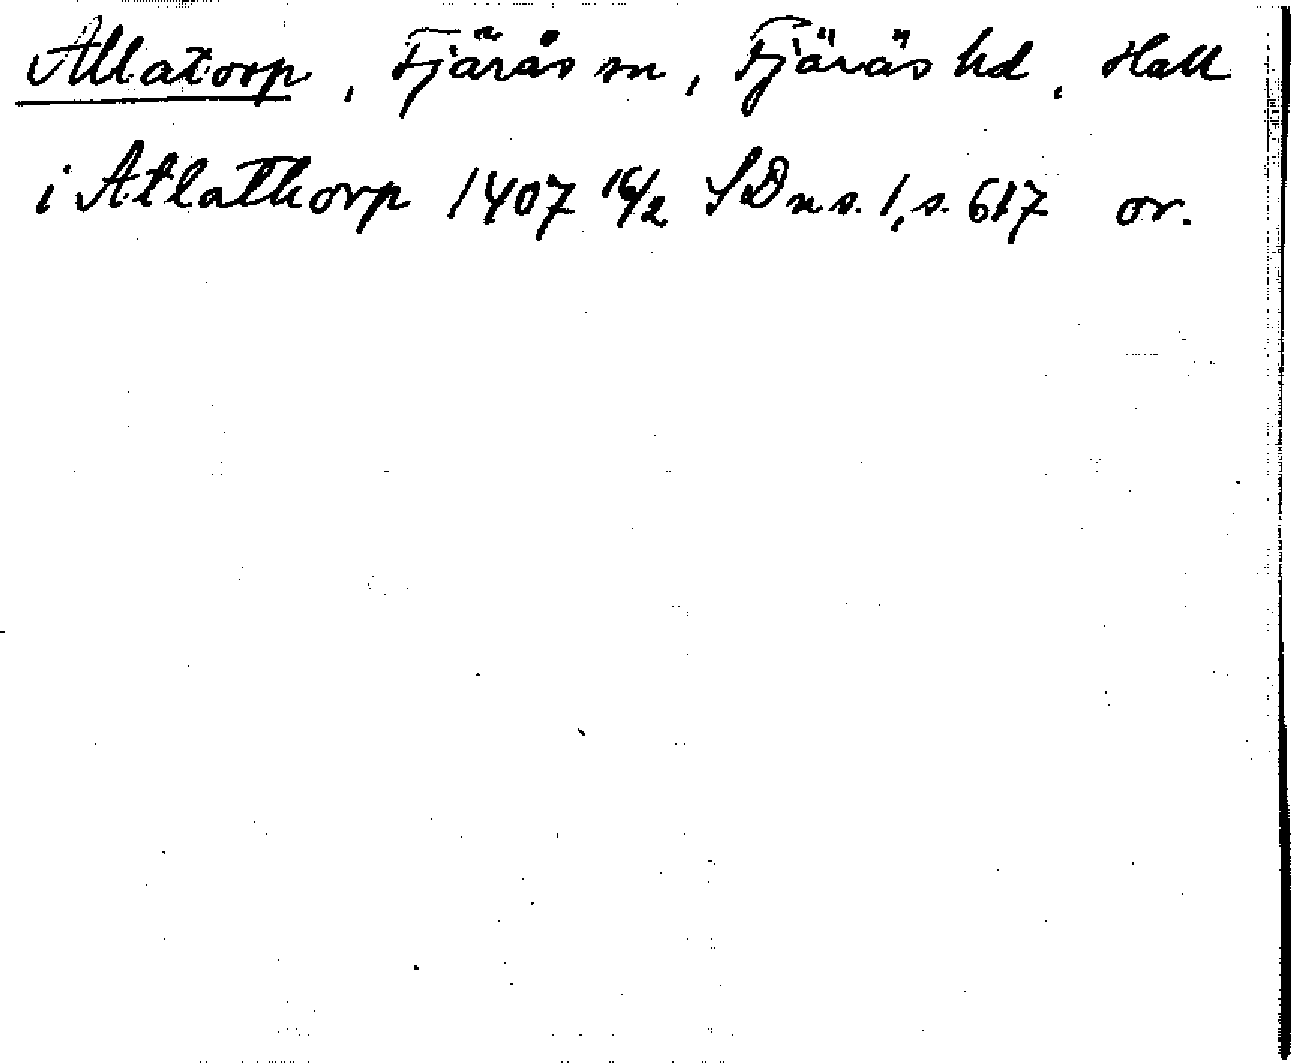 Allatorp, Fjärås sn, Fjäräs hd, Hall
i Atlathorp 1407 16/2 SD n s. 1, s. 617 or.